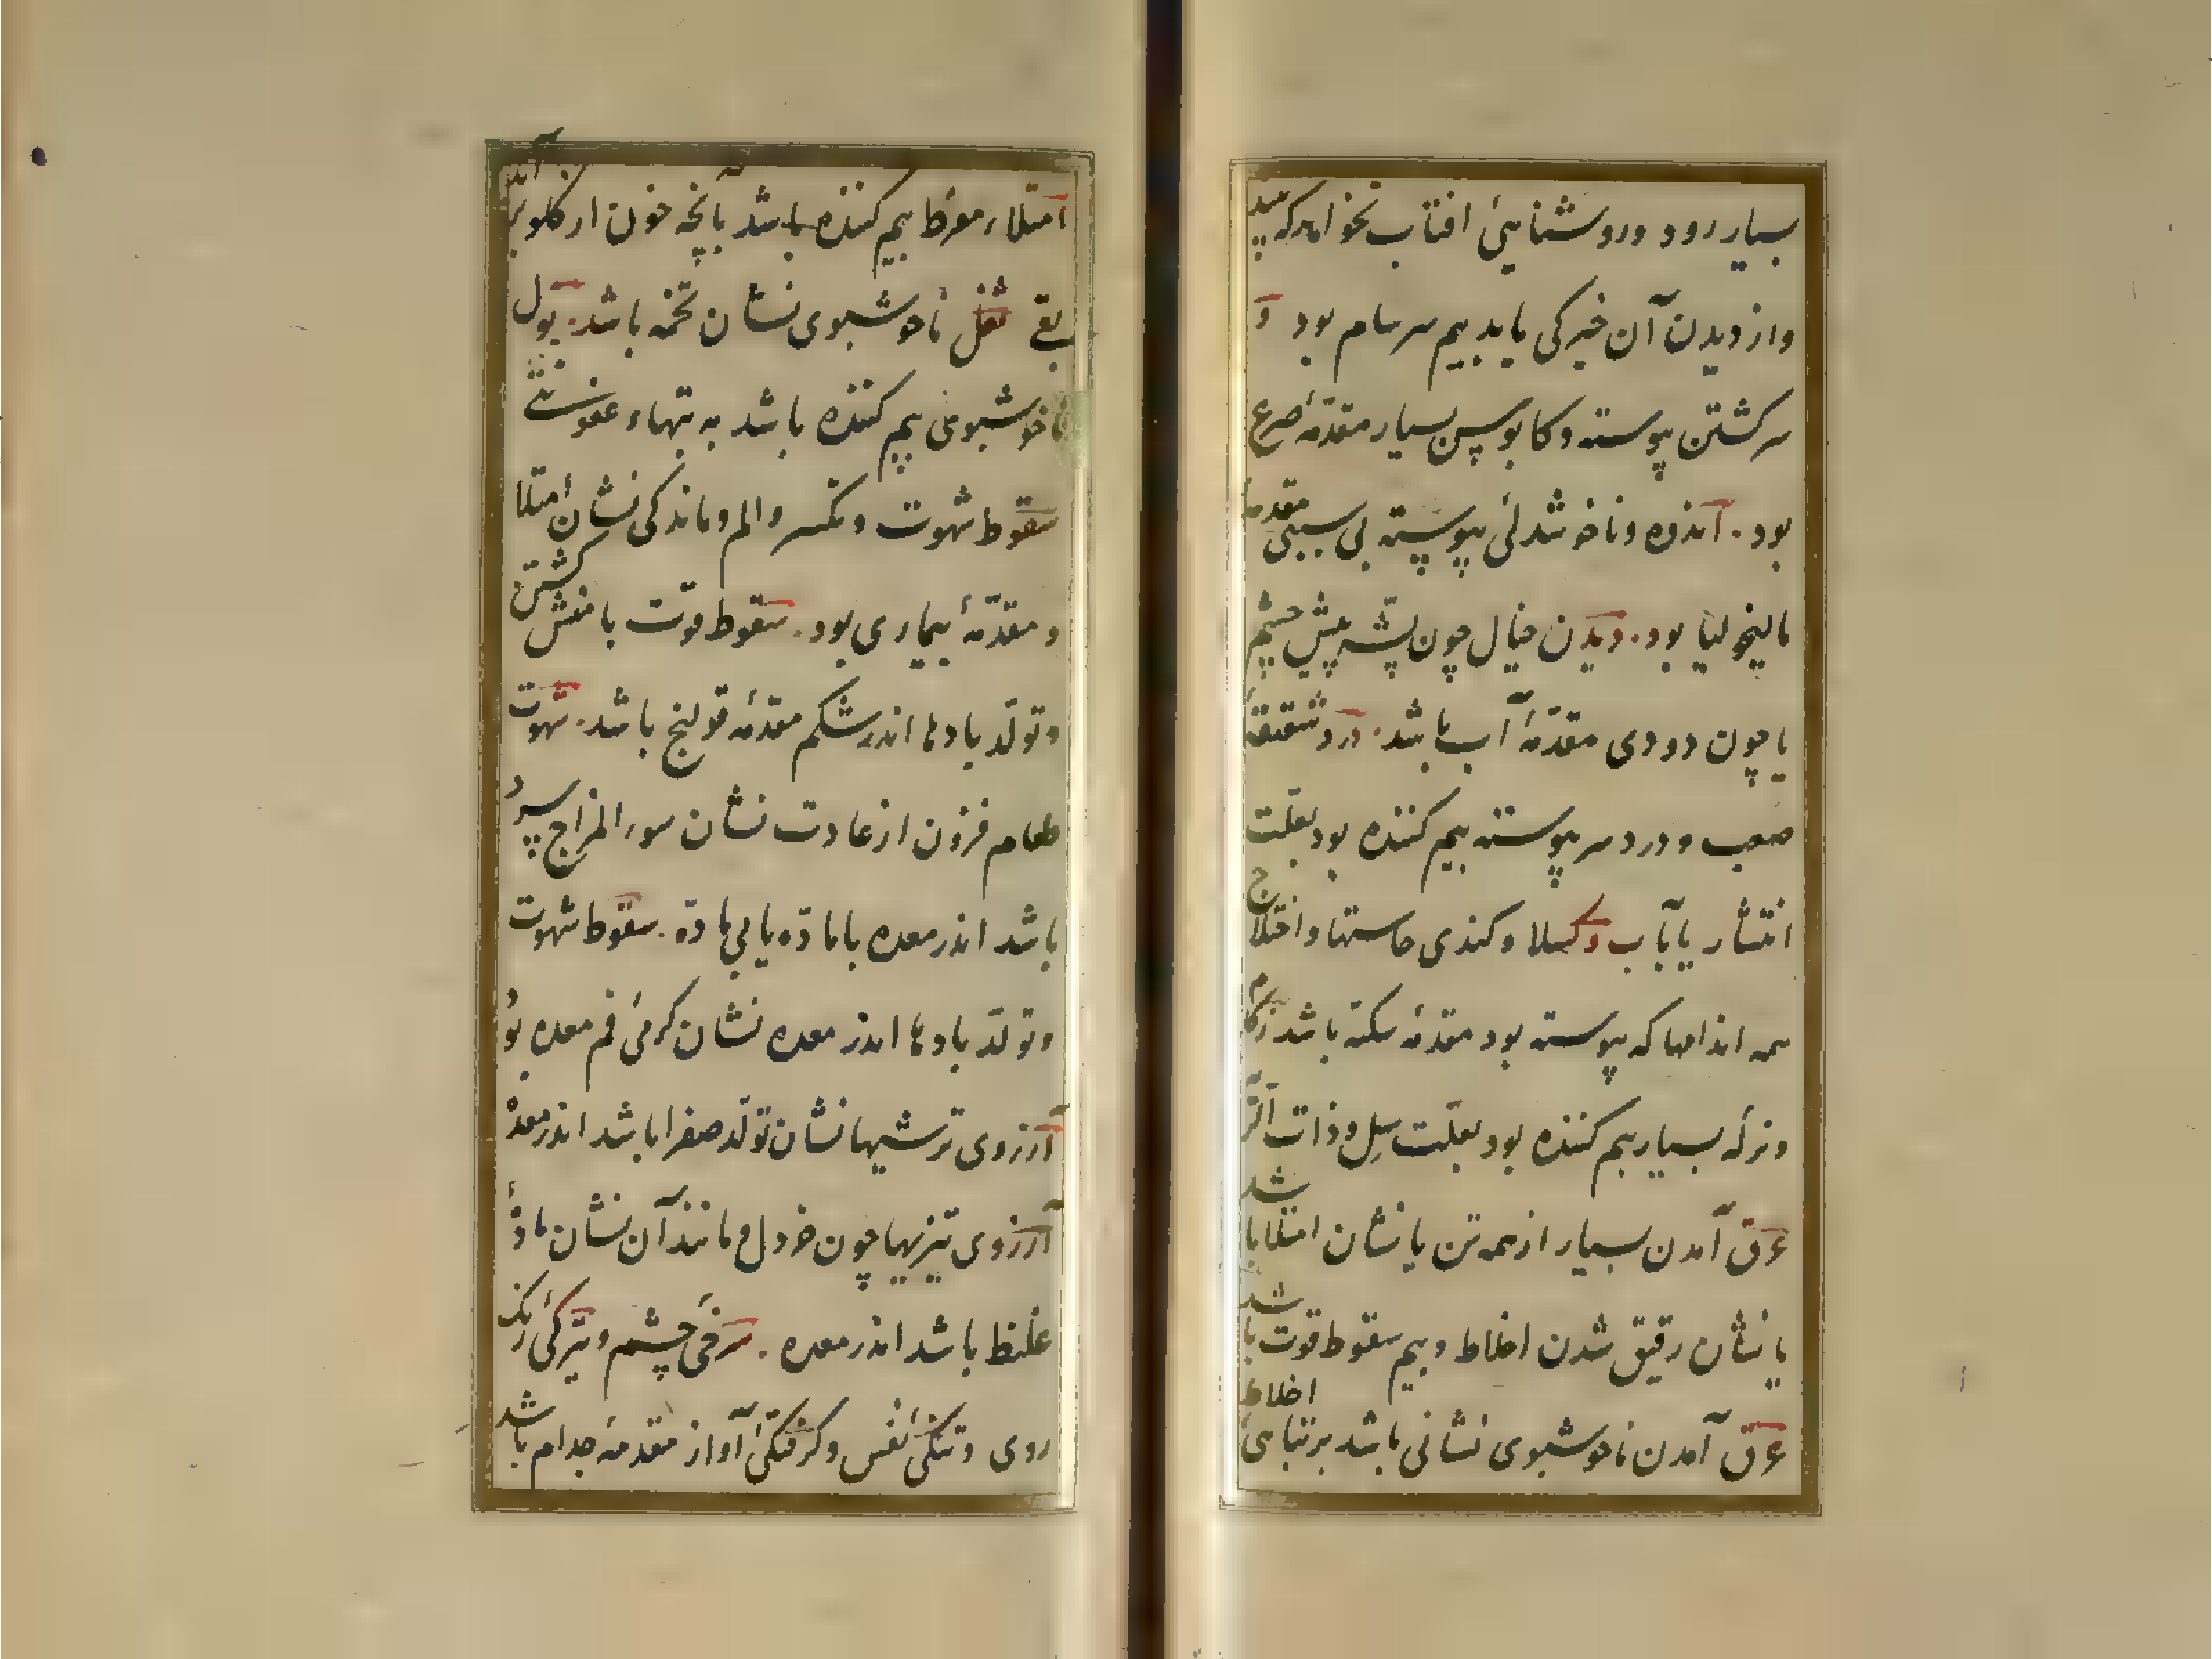 بسیار رود و روشنایئ افتاب نخواهد که بیند
و از دیدن آن خیرکی یابد بیم سرسام بود و
سرکشتن پیوسته و کابوس بسیار مقدمهٔ صرع
بود. اندوه و ناخوشدلئ پیوسته بی سببی مقدمهٔ
مالیخولیا بود. دیدن خیال چون پشه پیش چشم
یا چون دودی مقدّمهٔ آب باشد. درد شقیقهٔ
صعب و درد سر پیوسته بیم کننده بود بعلّت
انتشار یا بآب و کسلا و کندی حاستها و اختلاج
همه اندامها که پیوسته بود مقدمهٔ سکته باشد زکام
و نزله بسیار بیم کننده بود بعلّت سل و ذات الرّ
عرق آمدن بسیار از همه تن یا نشان امتلا باشد
یا نشان رقیق شدن اخلاط و بیم سقوط قوت باشد
عرق آمدن ناخوشبوی نشانی باشد بر تباهئ اخلاط
امتلاء مفرط بیم کننده باشد بآنچه خون از کلو برآید
بقی ثفل ناخوشبوی نشان تخمه باشد. بول
ناخوشبوی بیم کننده باشد به تبهاء عفونتی
سقوط شهوت و تکسر و الم و ماندکی نشان امتلا
و مقدّمهٔ بیماری بود. سقوط قوّت با منش کشتن
و تولّد بادها اندر شکم مقدمهٔ قولنج باشد. شهوت
طعام فزون از عادت نشان سوء المزاج سرد
باشد اندر معده با مادّه یا بی مادّه. سقوط شهوت
و تولّد بادها اندر معده نشان کرمئ فم معده بود
آرزوی ترشیها نشان تولّد صفرا باشد اندر معده
آرزوی تیزیها چون خردل و مانند آن نشان مادّهٔ
غلیظ باشد اندر معده. سرخئ چشم و تیرکئ رنک
روی و تنکئ نفس و کرفتکئ آواز مقدمهٔ جذام باشد